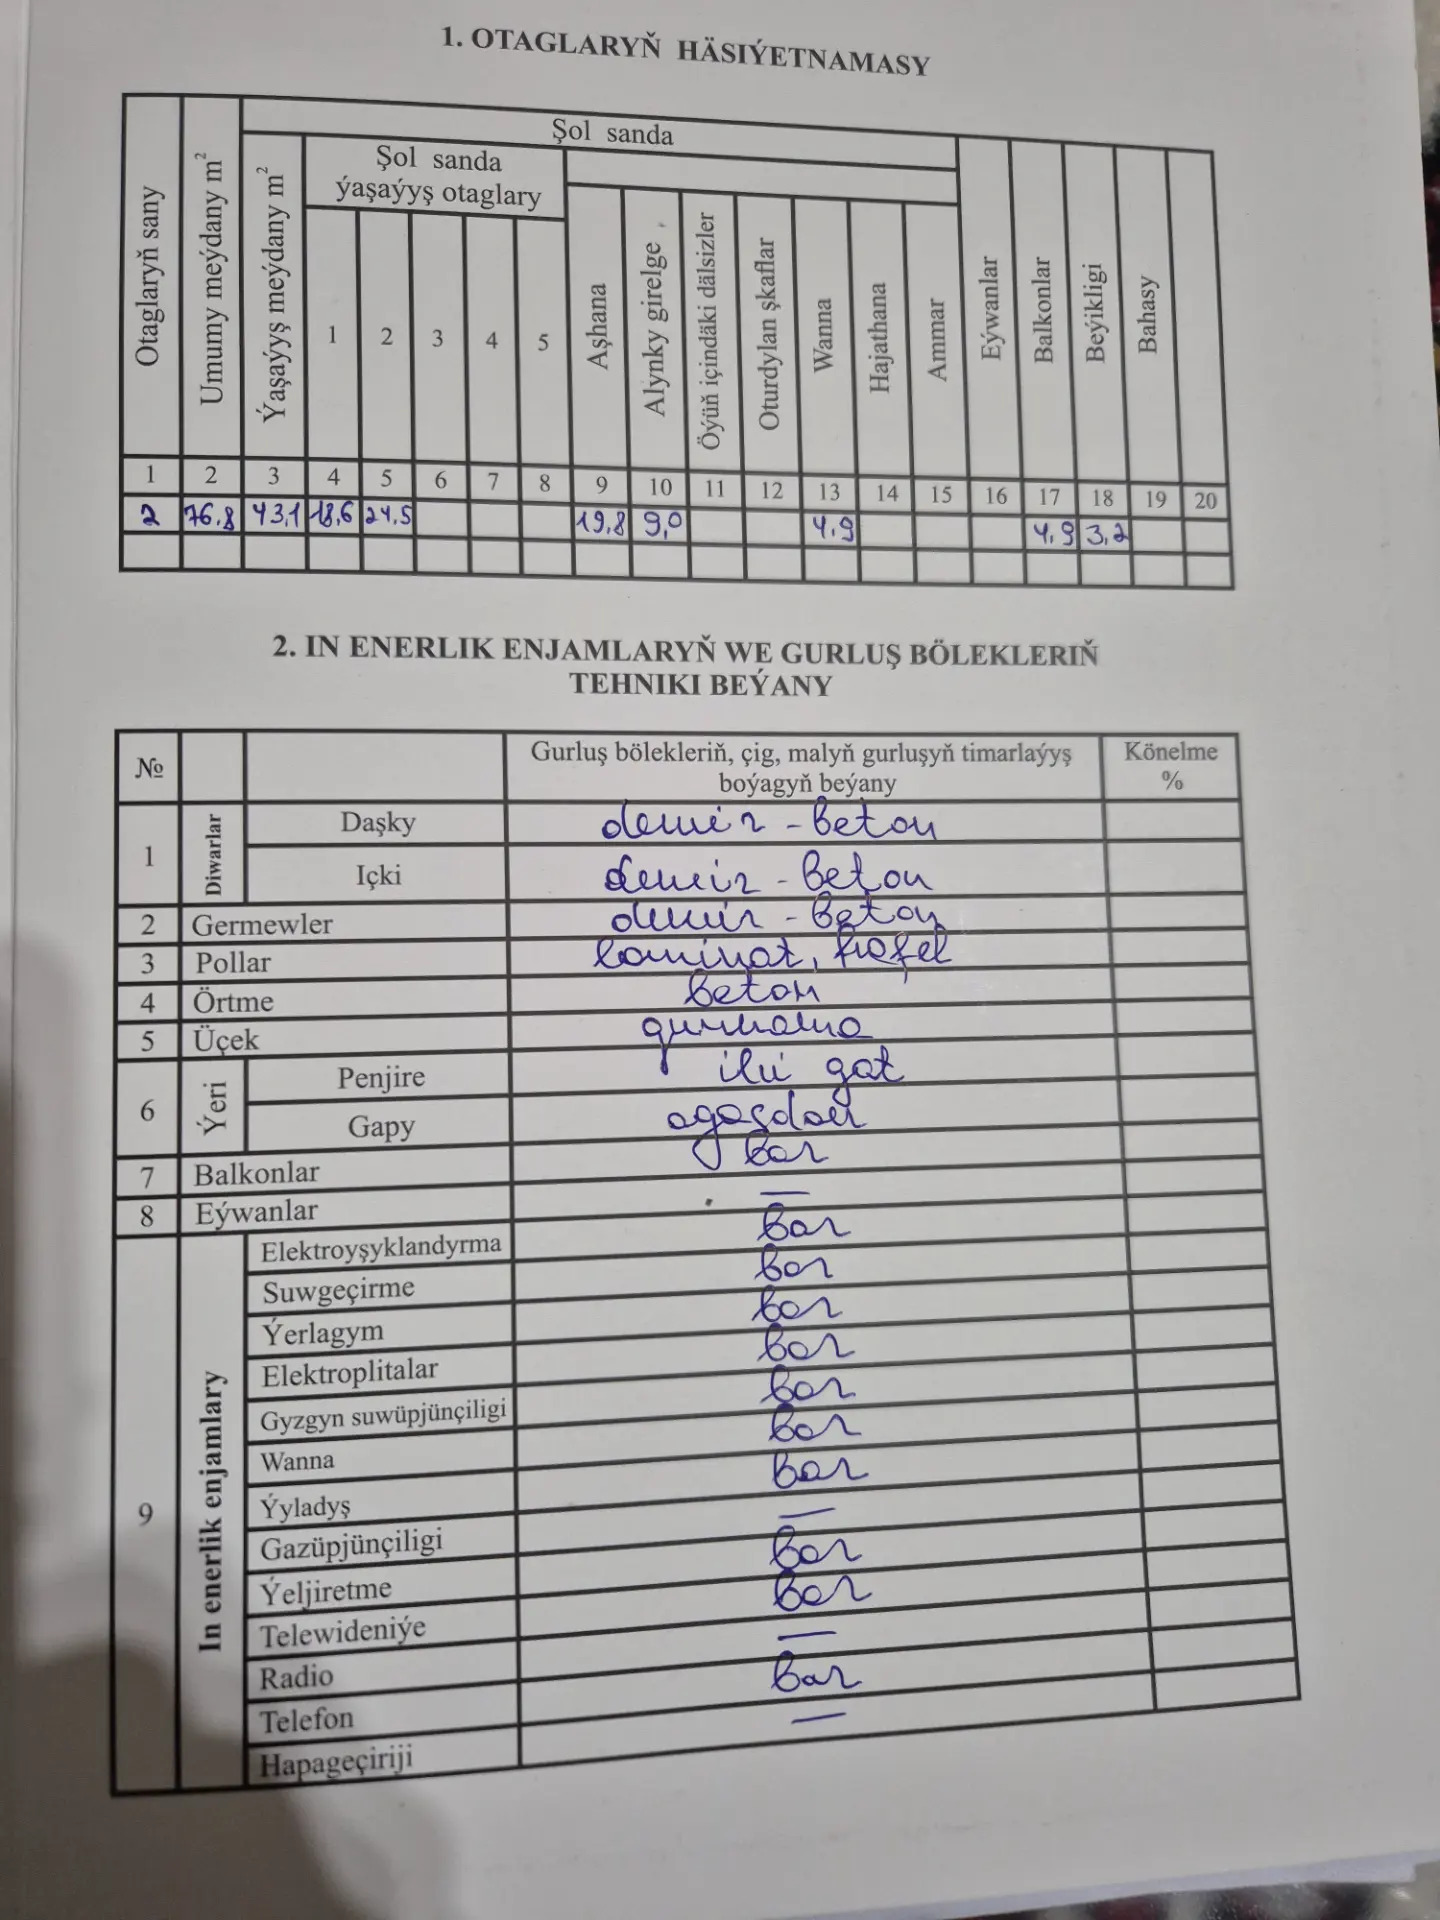 1. OTAGLARYŇ HÄSIÝETNAMASY
Otaglaryň sany
Umumy meýdany m²
Şol sanda
Ýaşaýyş meýdany m²
Şol sanda
ýaşaýyş otaglary
1 2 3 4 5
Aşhana
Alynky girelge
Öýüň içindäki dälsizler
Oturdylan şkaflar
Wanna
Hajathana
Ammar
Eýwanlar
Balkonlar
Beýikligi
Bahasy
1 2 3 4 5 6 7 8 9 10 11 12 13 14 15 16 17 18 19 20
2 76,8 43,1 18,6 24,5 19,8 9,0 4,9 4,9 3,2
2. IN ENERLIK ENJAMLARYŇ WE GURLUŞ BÖLEKLERIŇ
TEHNIKI BEÝANY
№ Gurluş bölekleriň, çig, malyň gurluşyň timarlaýyş
boýagyň beýany
Könelme
%
1 Diwarlar Daşky demir - beton
Içki demir - beton
2 Germewler demir - beton
3 Pollar laminat, kafel
4 Örtme beton
5 Üçek gurnama
6 Ýeri Penjire iki gat
Gapy agaçdan
7 Balkonlar bar
8 Eýwanlar —
9 In enerlik enjamlary Elektroyşyklandyrma bar
Suwgeçirme bar
Ýerlagym bar
Elektroplitalar bar
Gyzgyn suwüpjünçiligi bar
Wanna bar
Ýyladyş bar
Gazüpjünçiligi —
Ýeljiretme bar
Telewideniýe bar
Radio —
Telefon bar
Hapageçiriji —